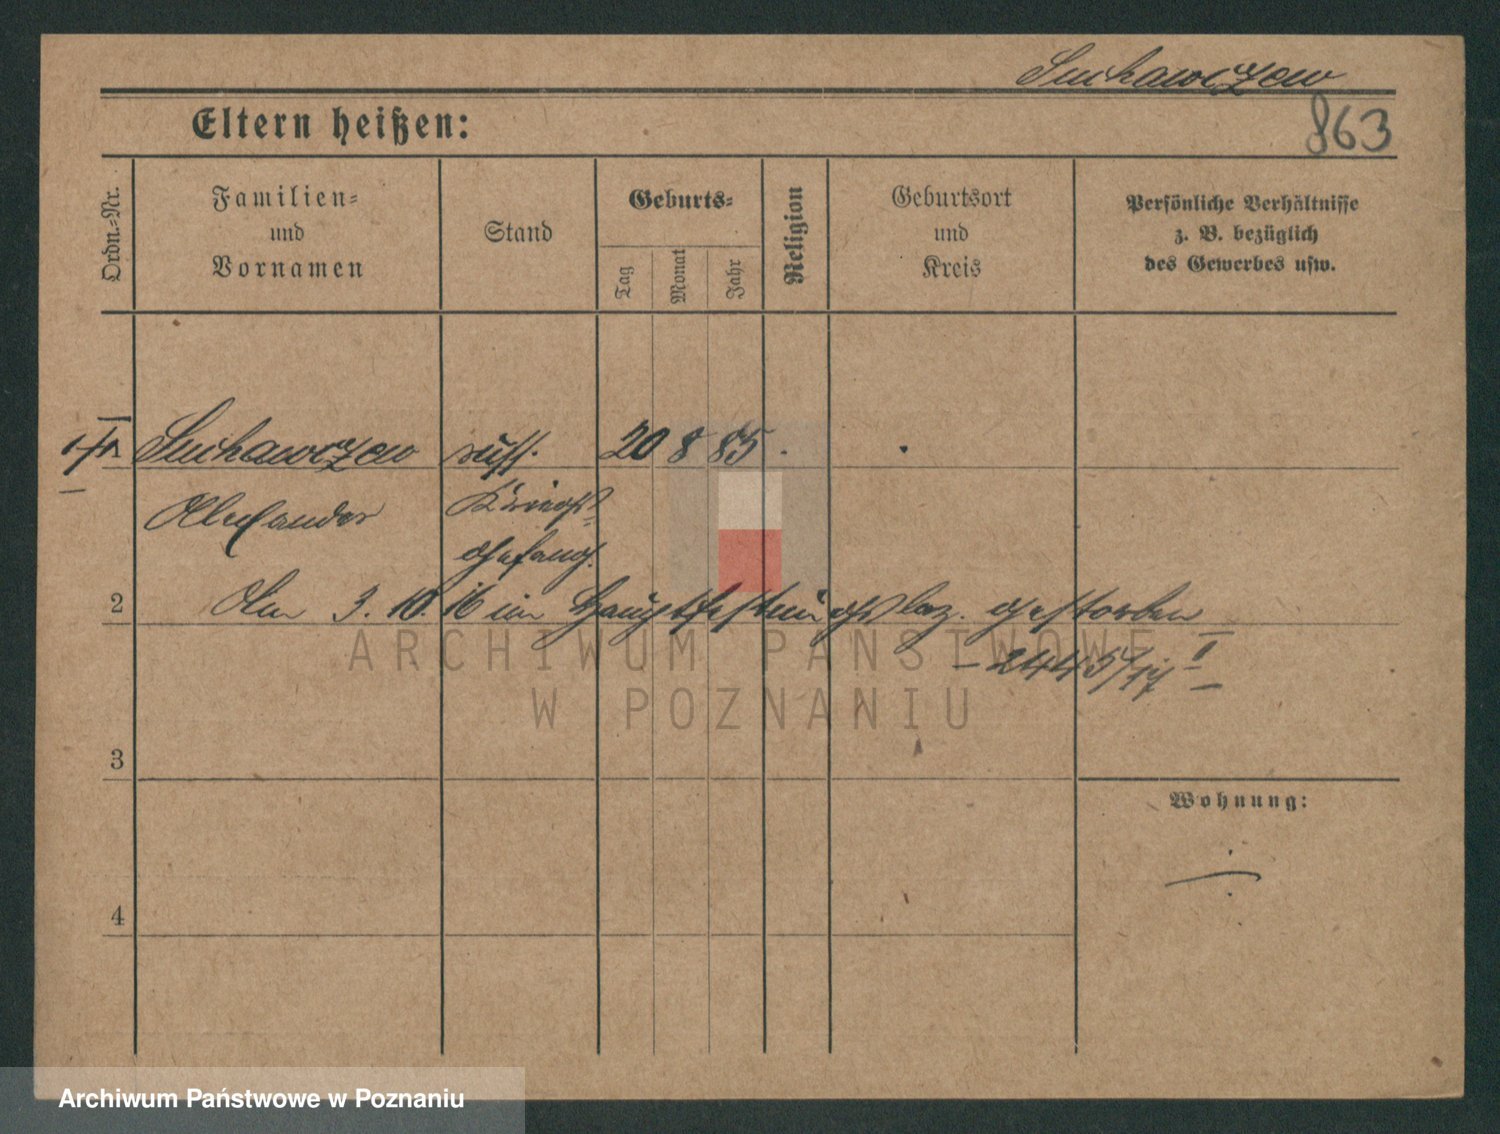 Suchawczew
Eltern heißen:
863
Ordn.-Nr.
Familien-
und
Vornamen
Stand
Geburts-
Tag
Monat
Jahr
Religion
Geburtsort
und
Kreis
Persönliche Verhältnisse
z. B. bezüglich
des Gewerbes usw.
Suchawczew russ. 20 8 85
Alexander Kriegs-
gefang.
2 Am 3. 10. 16 im Hauptfestungslaz. gestorben
- 2445/17 II -
ARCHIWUM PAŃSTWOWE
W POZNANIU
3
Wohnung:
4
Archiwum Państwowe w Poznaniu